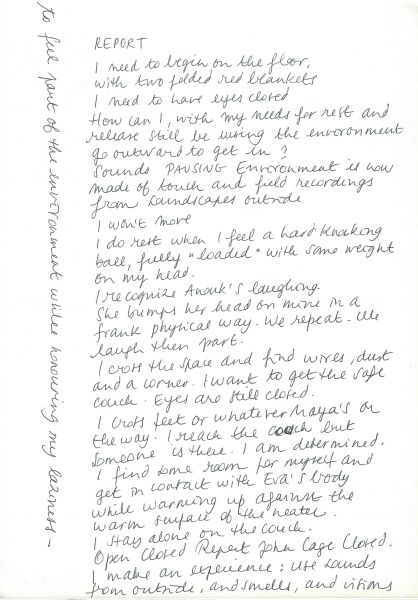 to feel part of the environment while honouring my laziness -
REPORT
I need to begin on the floor,
with two folded red blankets
I need to have eyes closed
How can I, with my needs for rest and
release still be using the environment
go outward to get in?
Sounds PAUSING Environment is now
made of touch and field recordings
from soundscapes outside
I won't move
I do rest when I feel a hard knocking
ball, fully "loaded" with some weight
on my head.
I recognize Anouk's laughing.
She bumps her head on mine in a
frank physical way. We repeat. We
laugh then part.
I cross the space and find wires, dust
and a corner. I want to get the safe
couch. Eyes are still closed.
I cross feet or whatever Maya's on
the way. I reach the couch but
someone is there. I am determined.
I find some room for myself and
get in contact with Eva's body
while warming up against the
warm surface of the heater.
I stay alone on the couch.
Open Closed Report John Cage Closed.
I make an experience: use sounds
from outside, and smells, and visions